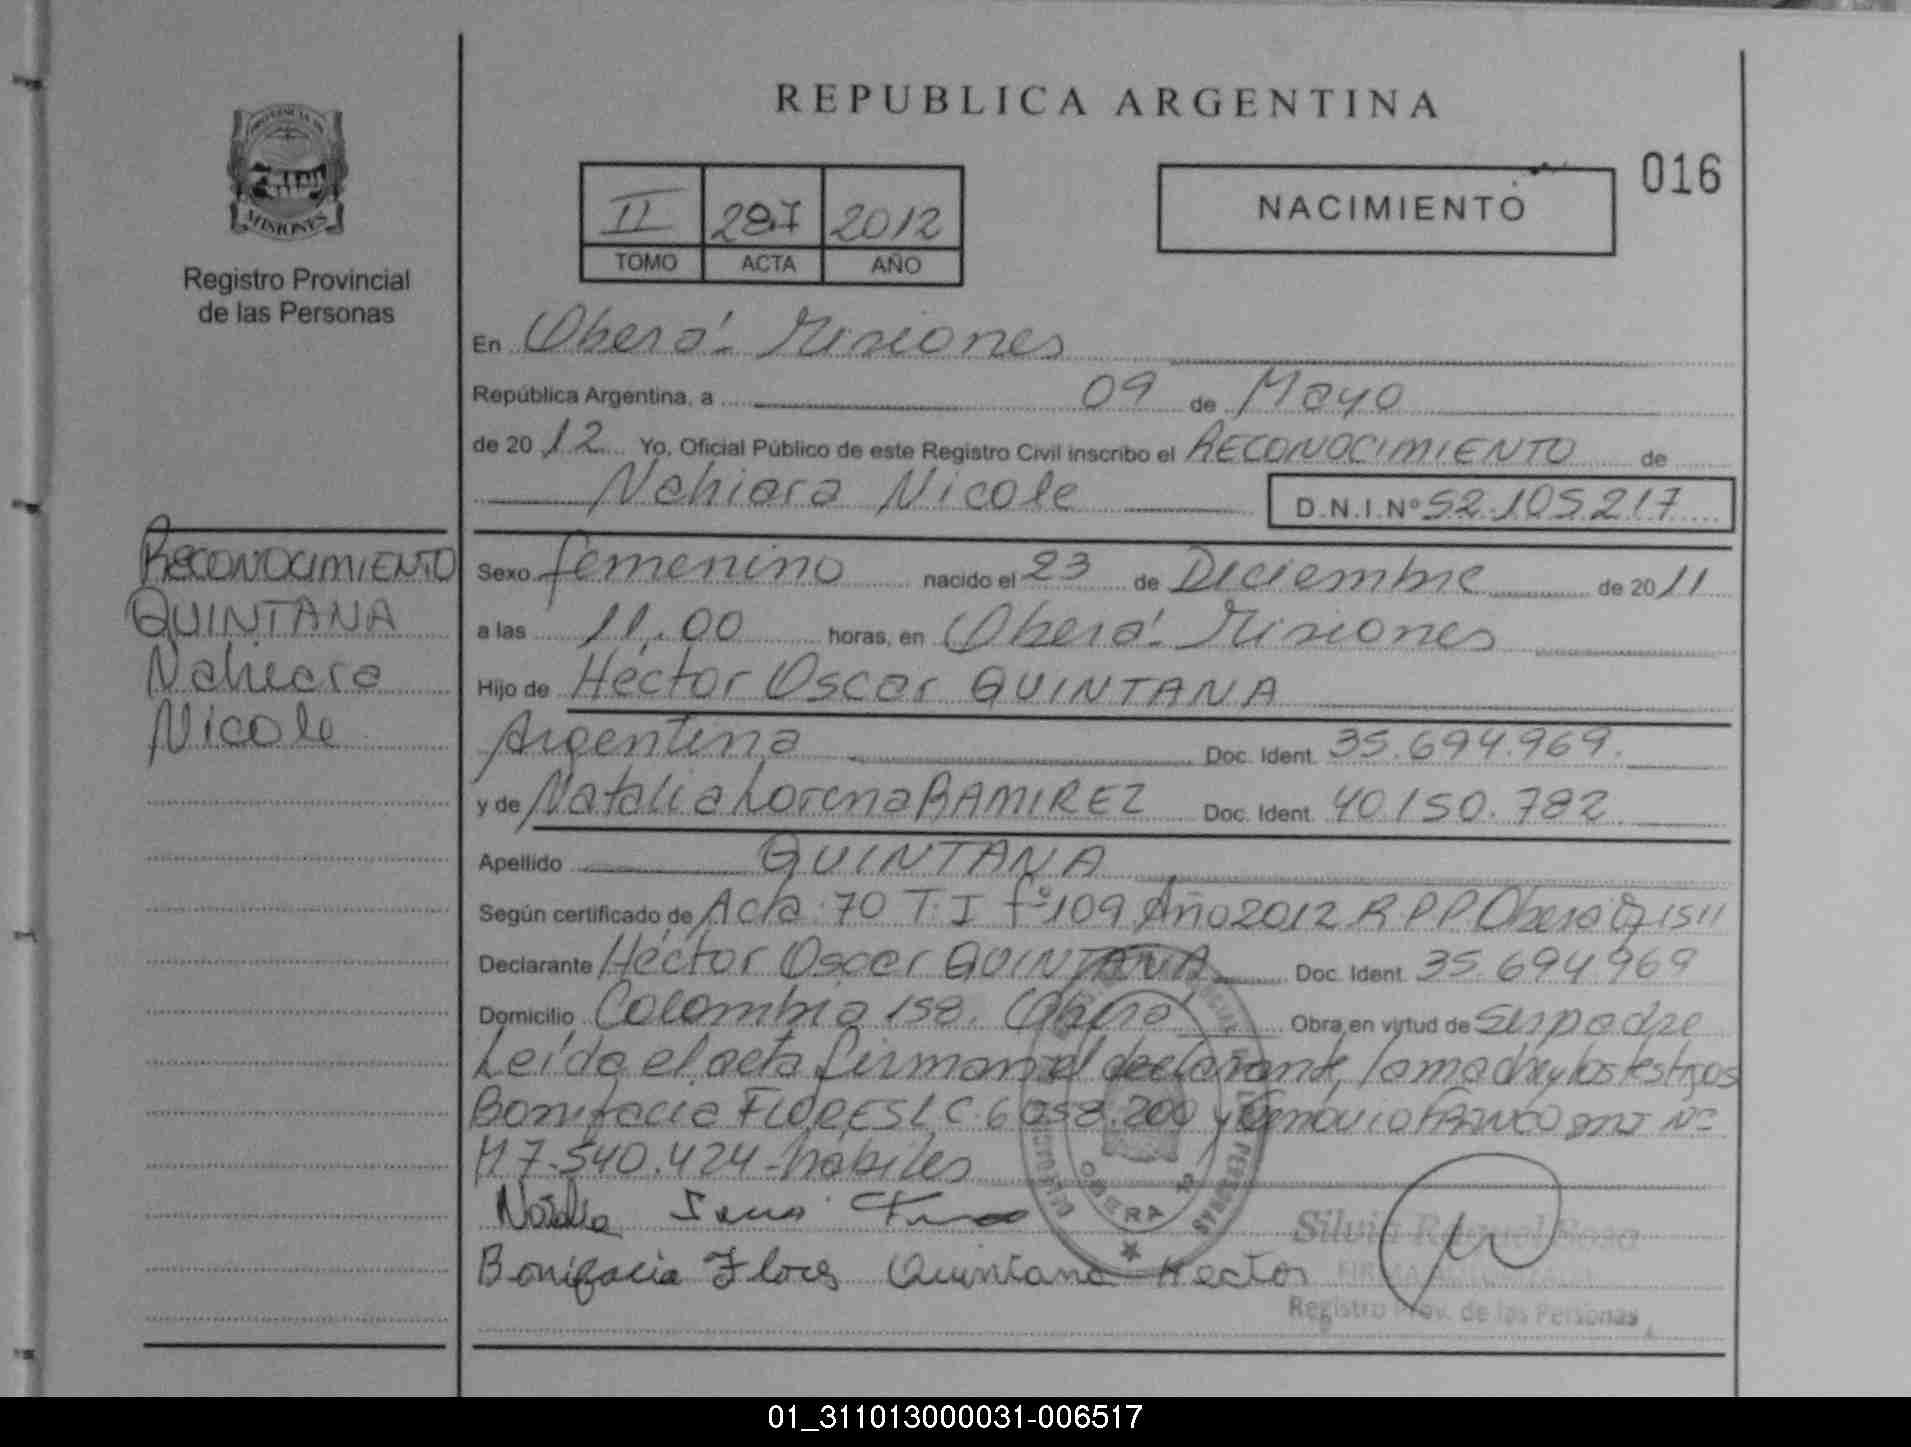 REPUBLICA ARGENTINA
PROVINCIA DE
MISIONES
Registro Provincial
de las Personas
II 287 2012
TOMO ACTA AÑO
NACIMIENTO
016
En Oberá - Misiones
República Argentina, a 09 de Mayo
de 2012 Yo, Oficial Público de este Registro Civil inscribo el RECONOCIMIENTO de
Nahiara Nicole D.N.I.Nº 52.105.217
RECONOCIMIENTO
QUINTANA
Nahiara
Nicole
Sexo femenino nacido el 23 de Diciembre de 2011
a las 11.00 horas, en Oberá - Misiones
Hijo de Héctor Oscar QUINTANA
Argentina Doc. Ident. 35.694.969.
y de Natalia Lorena RAMIREZ Doc. Ident. 40.150.782
Apellido QUINTANA
Según certificado de Acta 70 T. I fº 109 Año 2012 R P P Oberá 1511
Declarante Héctor Oscar QUINTANA Doc. Ident. 35.694969
Domicilio Colombia 158. Oberá Obra en virtud de Ser padre
Leída el acta firman el declarante, la madre y los testigos
Bonifacia FLORES L C. 6.058.200 y FRANCO DNI Nº
M 7.540.424 - hábiles
OBERA
Bonifacia Flores Quintana Hector
Silvia Raquel Sosa
Registro Prov. de las Personas
01_311013000031-006517